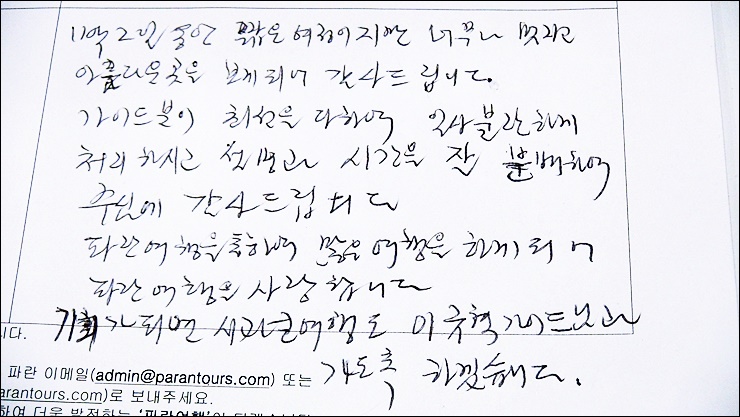 1박 2일 동안 짧은 여행이지만 너무나 멋지고
아름다운 곳을 보게되어 감사드립니다.
가이드분이 최선을 다하여 일사분란하게
처리하시고 설명과 시간을 잘 분배하여
주심에 감사드립니다
파란여행을 통하여 많은 여행을 하게되어
파란여행을 사랑합니다
기회가되면 시과년여행도 이규혁가이드님과
니다.
가도록 하겠습니다.
파란 이메일(admin@parantours.com) 또는
arantours.com)로 보내주세요.
하여 더욱 발전하는 '파란여행'이 되겠습니다